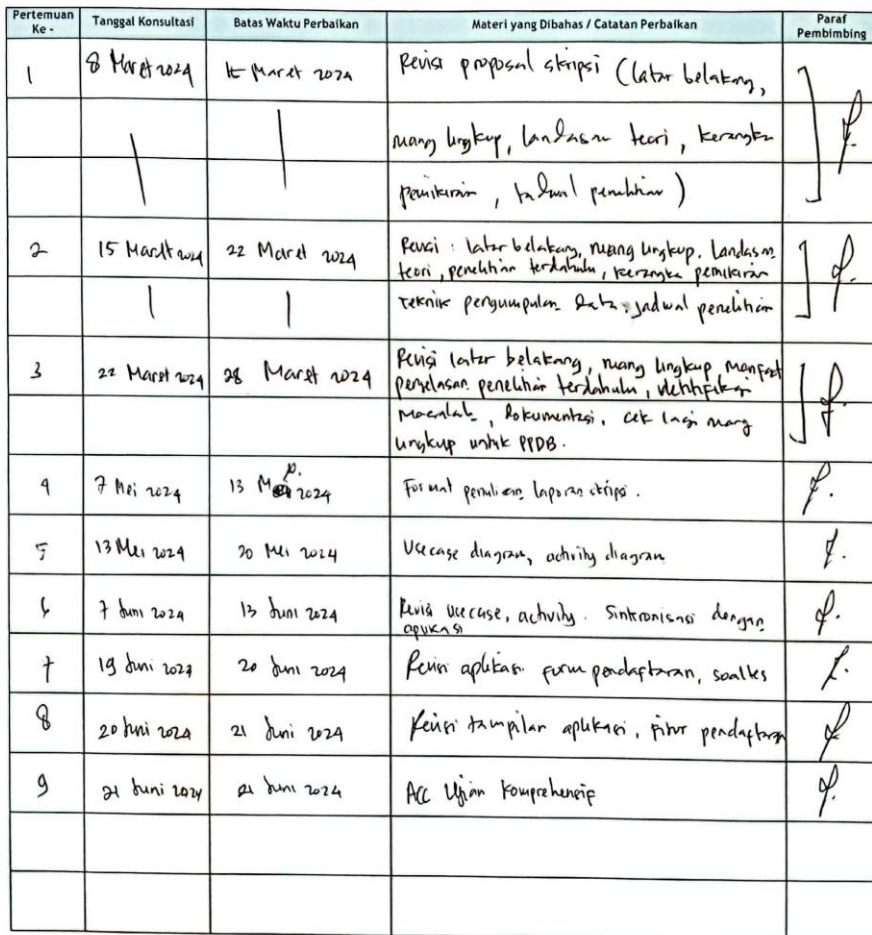 Pertemuan Ke - Tanggal Konsultasi Batas Waktu Perbaikan Materi yang Dibahas / Catatan Perbaikan Paraf Pembimbing
1 8 Maret 2024 Maret 2024 Revisi proposal skripsi (latar belakang,
ruang lingkup, landasan teori, kerangka
pemikiran, jadwal penelitian)
2 15 Maret 2024 22 Maret 2024 Revisi : latar belakang, ruang lingkup, landasan
teori, penelitian terdahulu, kerangka pemikiran
teknik pengumpulan data, jadwal penelitian
3 22 Maret 2024 28 Maret 2024 Revisi latar belakang, ruang lingkup, manfaat
penjelasan penelitian terdahulu, identifikasi
masalah, dokumentasi, cek lagi ruang
lingkup untuk PPDB.
4 7 Mei 2024 13 Mei 2024 Format penulisan laporan skripsi.
5 13 Mei 2024 20 Mei 2024 Usecase diagram, activity diagram
6 7 Juni 2024 13 Juni 2024 Revisi usecase, activity. Sinkronisasi dengan
aplikasi
7 19 Juni 2024 20 Juni 2024 Revisi aplikasi form pendaftaran, soal tes
8 20 Juni 2024 21 Juni 2024 Revisi tampilan aplikasi, fitur pendaftaran
9 21 Juni 2024 21 Juni 2024 ACC Ujian Komprehensif